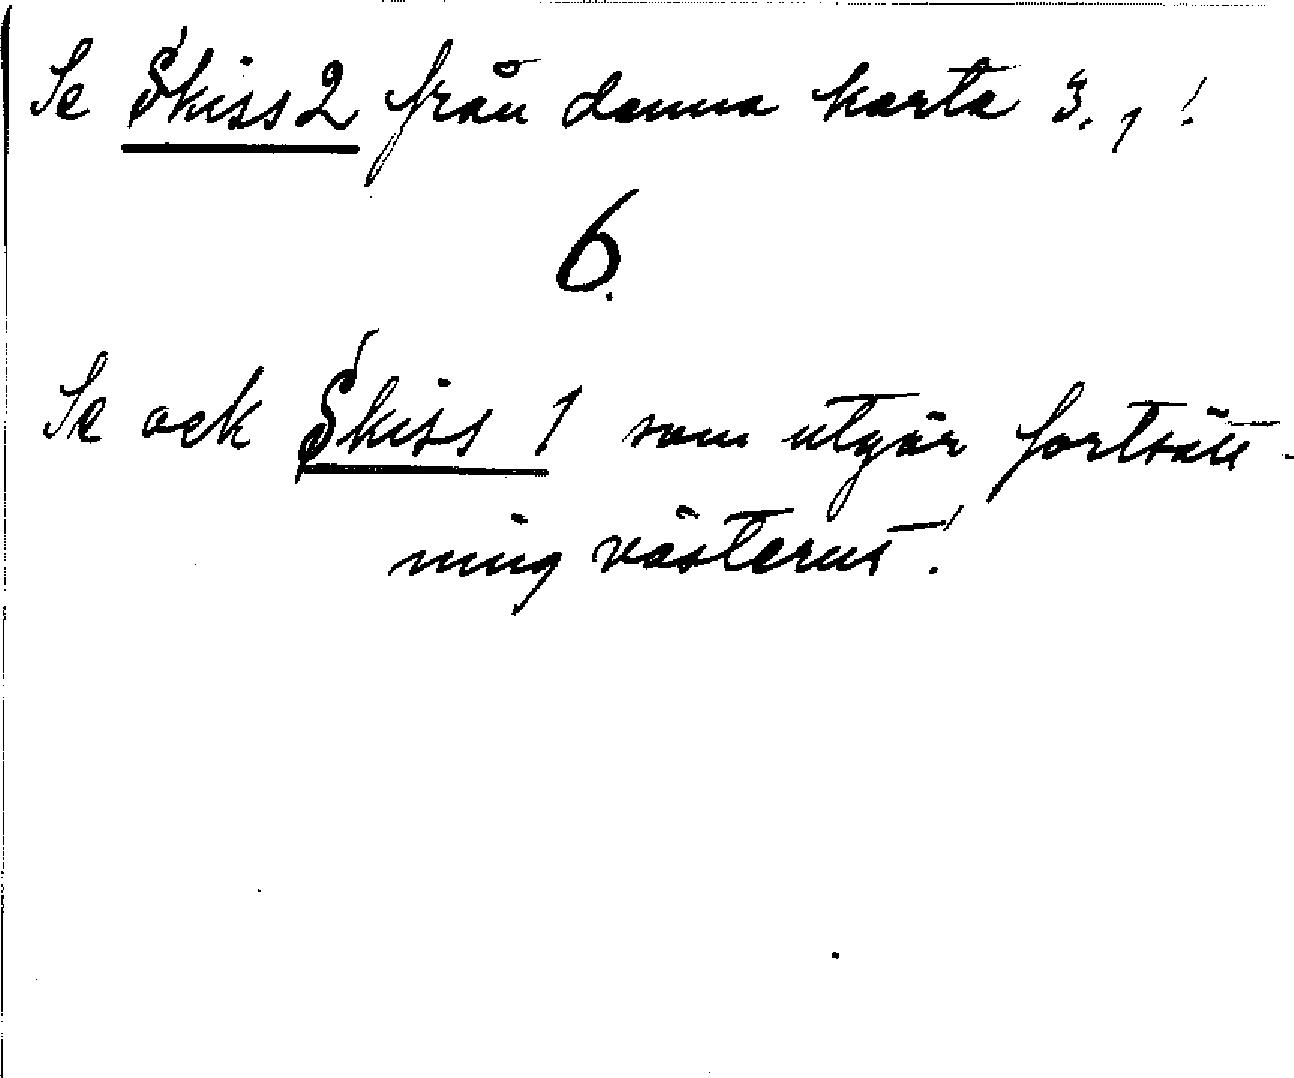 Se Skiss 2 från denna karta 3. , !
6.
Se ock Skiss 1 som utgör fortsätt-
ning västerut!